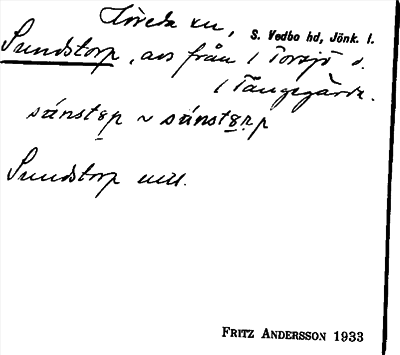 Höreda sn, S. Vedbo hd, Jönk. l.
Sundstorp, avs från 1 Torsjö o.
1 Tångegårda.
sánstꞷp ~ sánstꞷrp
Sundstorp mtl.
FRITZ ANDERSSON 1933